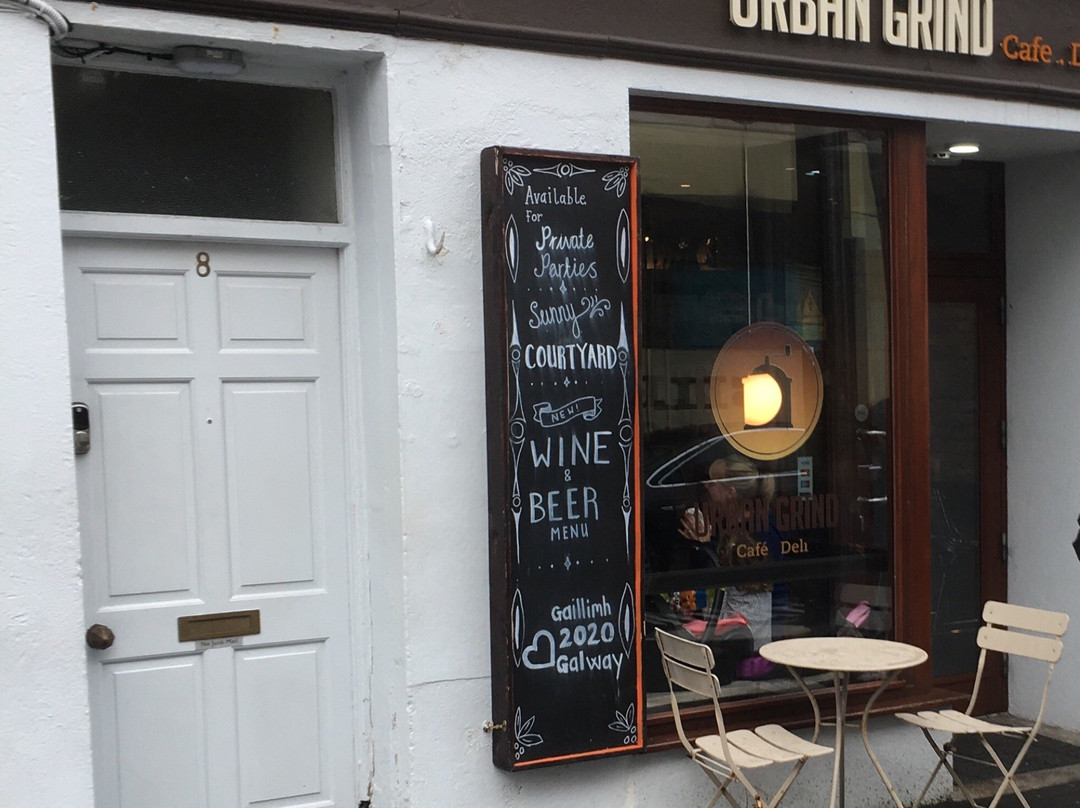 URBAN GRIND
Cafe
8
Available
For
Private
Parties
Sunny
COURTYARD
NEW!
WINE
&
BEER
MENU
Gaillimh
2020
Galway
URBAN GRIND
Café Deli
No Junk Mail